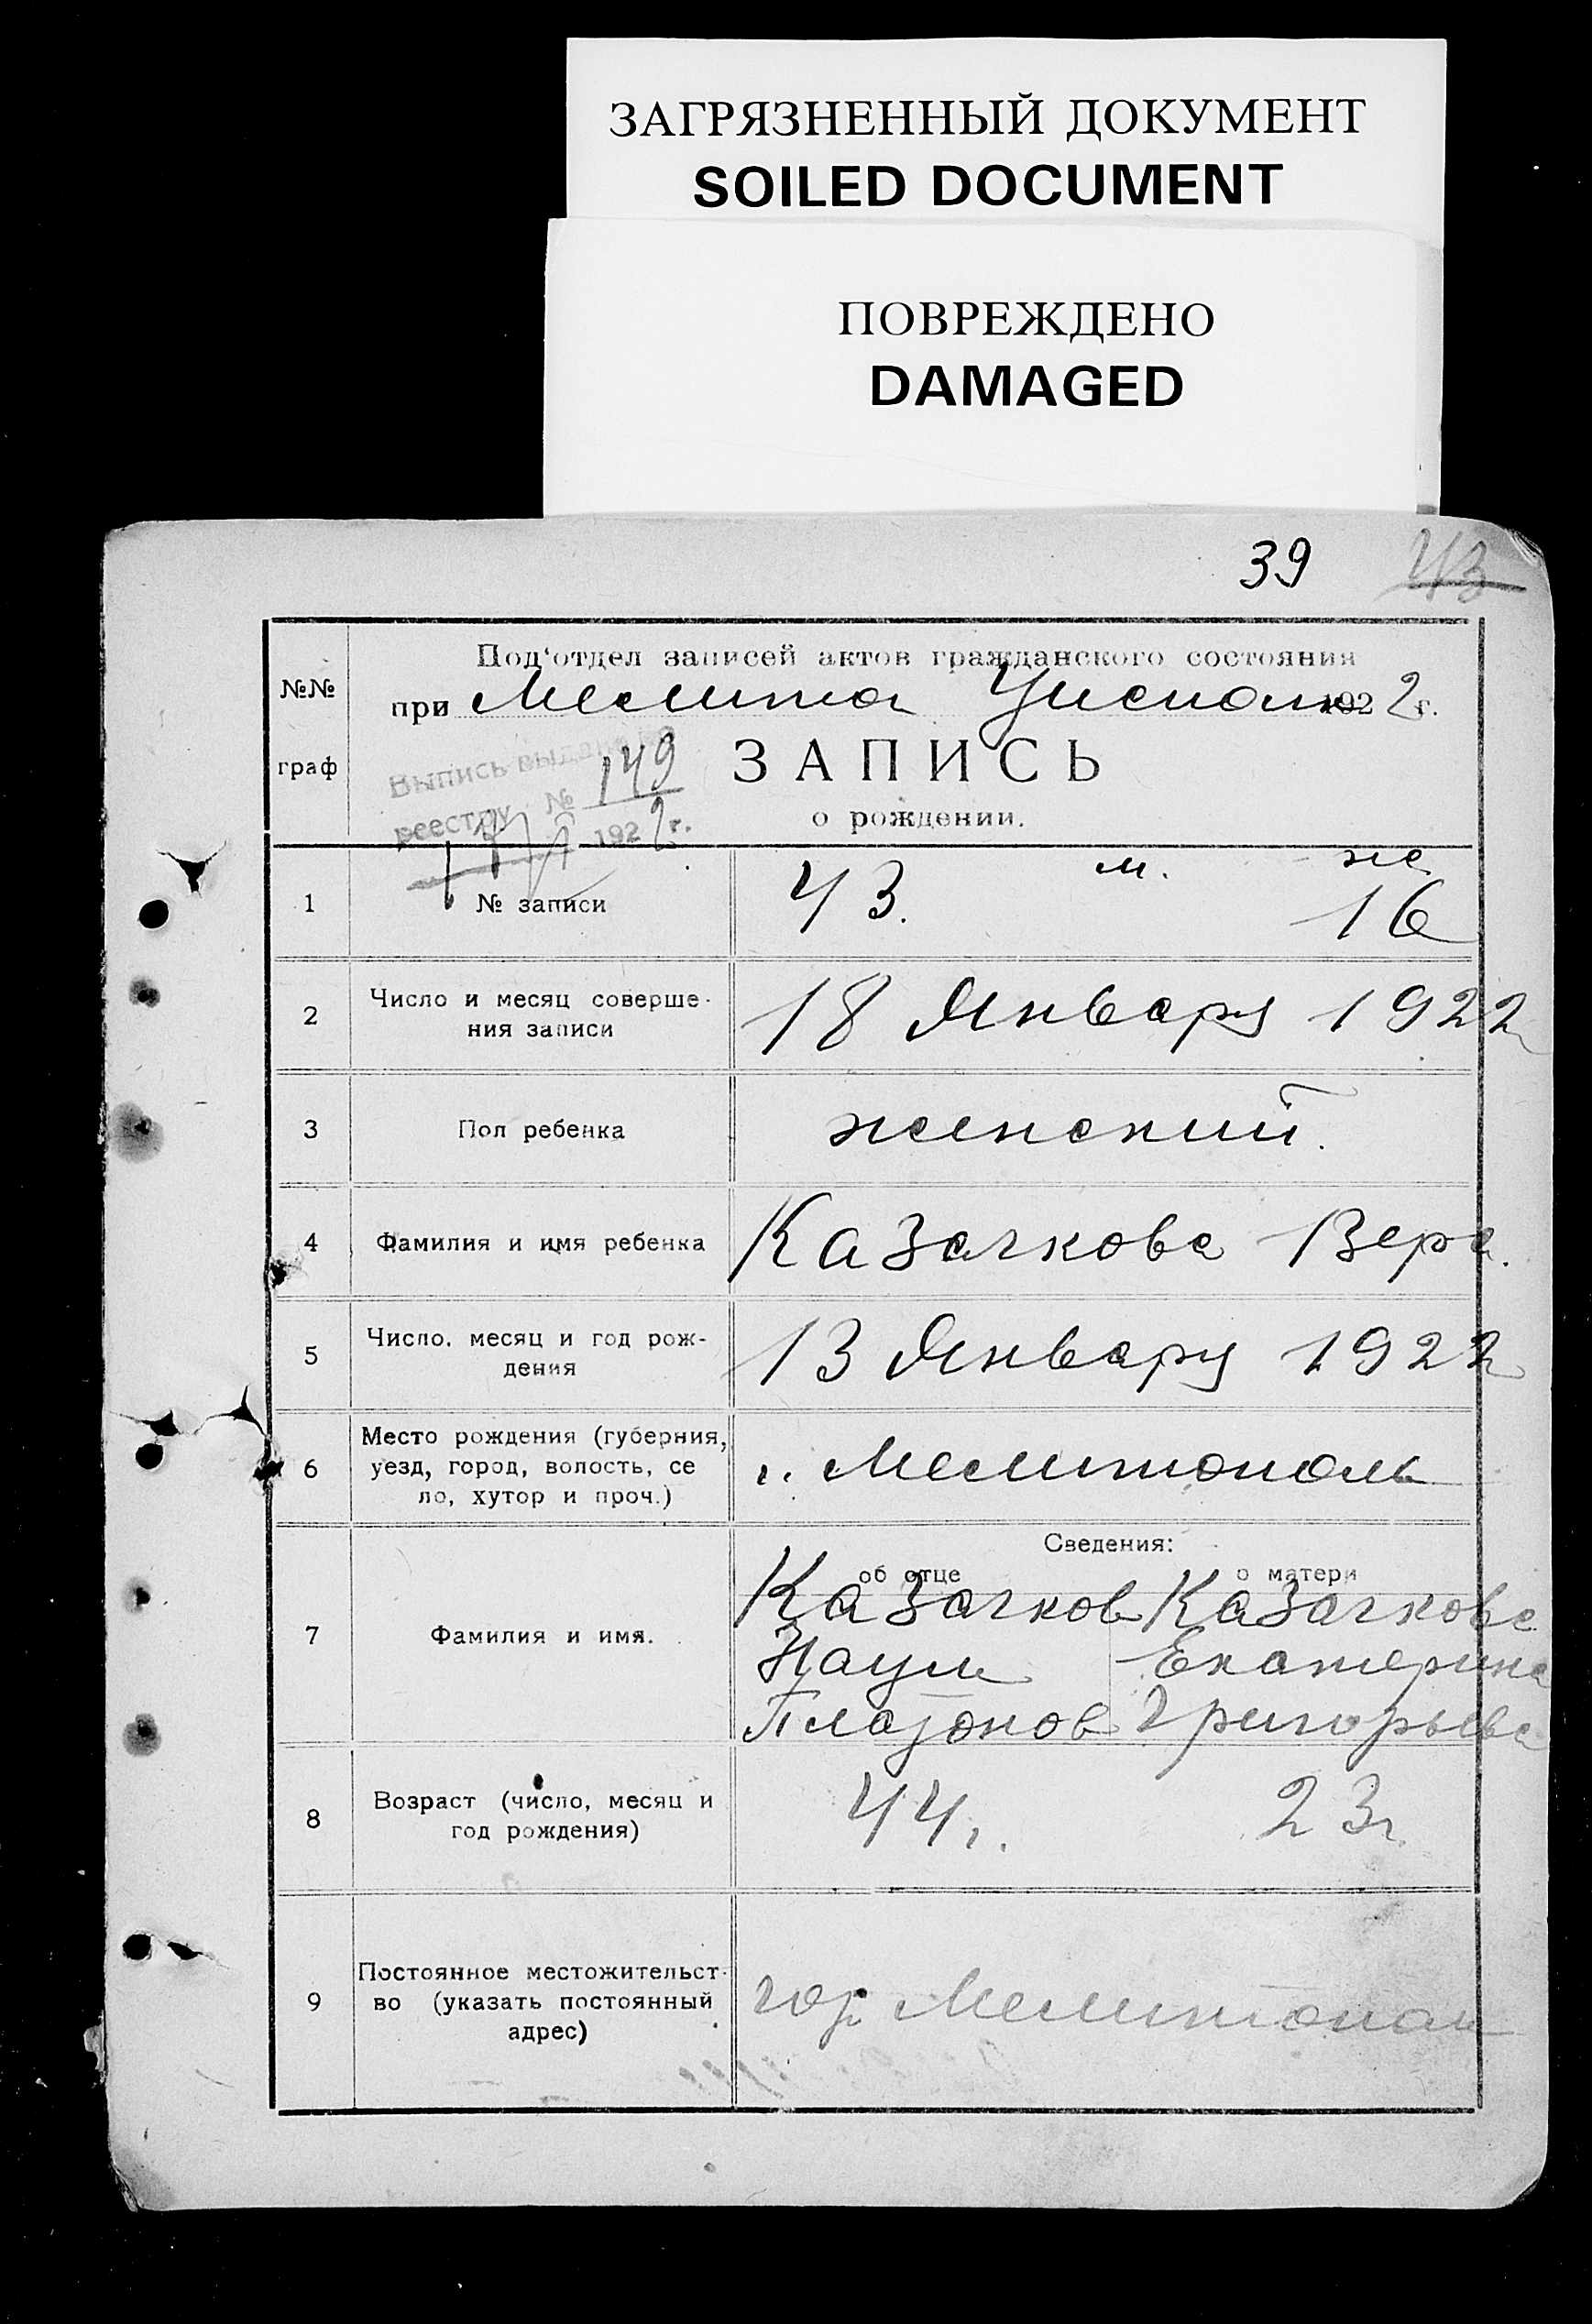 ЗАГРЯЗНЕННЫЙ ДОКУМЕНТ
SOILED DOCUMENT
ПОВРЕЖДЕНО
DAMAGED
39 43
№№ граф
Под'отдел записей актов гражданского состояния
при Мелито Уисполк 1922 г.
Выпись выдана
реестру № 149
1922 г.
ЗАПИСЬ
о рождении.
м. же
1 № записи 43. 16
2 Число и месяц соверше-
ния записи 18 Января 1922
3 Пол ребенка женский.
4 Фамилия и имя ребенка Казачкова Вера.
5 Число, месяц и год рож-
дения 13 Январу 1922
6 Место рождения (губерния,
уезд, город, волость, се
ло, хутор и проч.) г. Мелитополь
Сведения:
об отце о матери
7 Фамилия и имя. Казачков Казачкова
Наум Екатерина
Платонов Григорьева
8 Возраст (число, месяц и
год рождения) 44 г. 23 г.
9 Постоянное местожительст-
во (указать постоянный
адрес) гор. Мелитополь